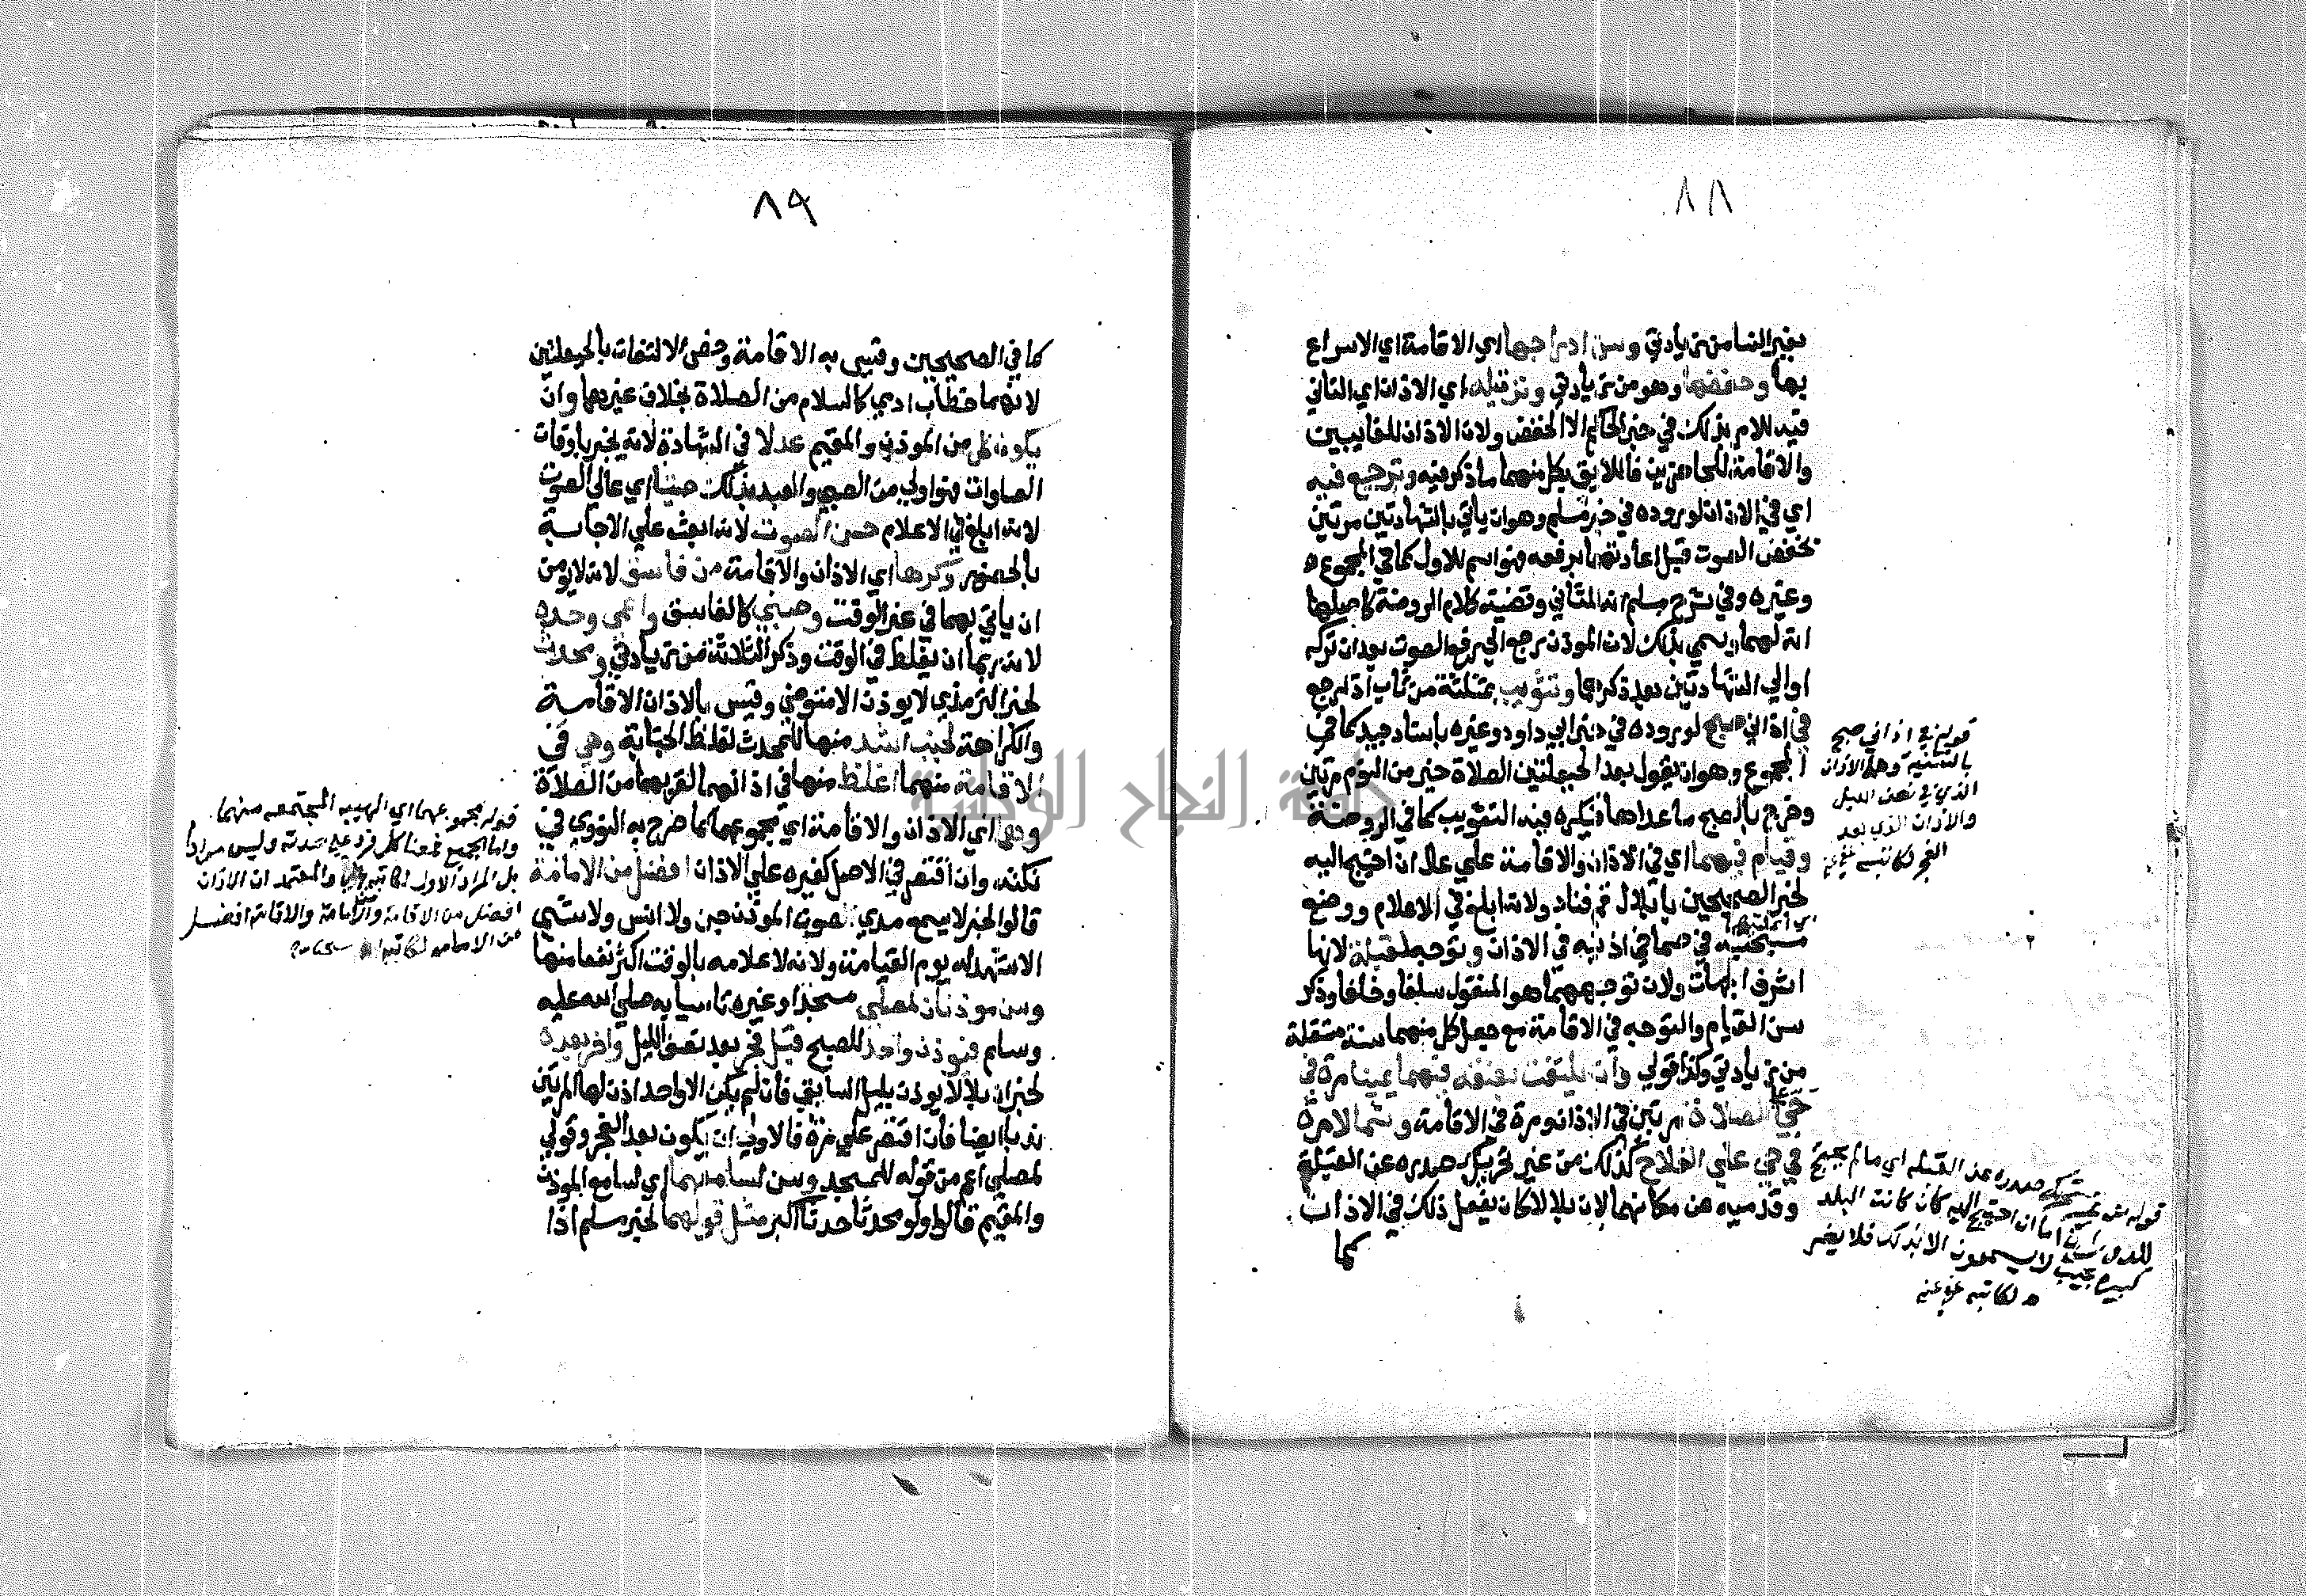 ٨٨
بغير النسا من زيادتي وسن ادراجها اي الاقامة اي الاسراع
بها وخفضها وهو من زيادتي وترتيله اي الاذان اي التاني
فيه للامر بذلك في خبر الحاكم الا الخفض ولان الاذان للغايبين
والاقامة للحاضرين فاللايق بكل منهما ما ذكر فيه وترجيع فيه
اي في الاذان لوروده في خبر مسلم وهو ان ياتي بالشهادتين مرتين
بخفض الصوت قبل اعادتهما برفعه فهو اسم للاول كما في المجموع
وغيره وفي شرح مسلم انه للثاني وقضية كلام الروضة كاصلها
انه لهما ويسمي بذلك لان الموذن رجع الي رفع الصوت بعد ان تركه
او الي الشهادتين بعد ذكرهما وتثويب بمثلثة من ثاب اذا رجع
في اذاني صبح لوروده في خبر ابي داود وغيره باسناد جيد كما في
المجموع وهو ان يقول بعد الحيعلتين الصلاة خير من النوم مرتين
وخرج بالصبح ما عداها فيكره فيه التثويب كما في الروضة
وقيام فيهما اي في الاذان والاقامة علي عال ان احتيج اليه
لخبر الصحيحين يا بلال قم فناد ولانه ابلغ في الاعلام ووضع
مسبحتيه في صماخي اذنيه في الاذان وتوجه لقبلة لانها
اشرف الجهات ولان توجههما هو المنقول سلفا وخلفا وذكر
سن القيام والتوجه في الاقامة مع جعل كل منهما سنة مستقلة
من زيادتي وكذا قولي وان يلتفت بعنقه فيهما يمينا مرة في
حي علي الصلاة مرتين في الاذان ومرة في الاقامة وشمالا مرة
في حي علي الفلاح كذلك من غير تحويل صدره عن القبلة
وقدميه عن مكانهما لان بلالا كان يفعل ذلك في الاذان
كما
قوله في اذاني صبح
بالتثنية وهما الاذان
الذي في نصف الليل
والاذان الذي بعد
الفجر لكاتبه عفي عنه
صدره عن القبلة اي ما لم يحتج
اليه كان كانت البلد
لا يسمعون الا بذلك فلا يضر
لكاتبه عفي عنه
٨٩
كما في الصحيحين وقيس به الاقامة وخص الالتفات بالحيعلتين
لانهما خطاب ادمي كالسلام من الصلاة بخلاف غيرهما وان
يكون كل من الموذن والمقيم عدلا في الشهادة لانه يخبر باوقات
الصلوات فهو اولي من الصبي والعبد بذلك صيتا اي عالي الصوت
لانه ابلغ في الاعلام حسن الصوت لانه ابعث علي الاجابة
بالحضور وكرها اي الاذان والاقامة من فاسق لانه لا يومن
ان ياتي بهما في غير الوقت وصبي كالفاسق واعمي وحده
لانه ربما ان يغلط في الوقت وذكر الثلاثة من زيادتي ومحدث
لخبر الترمذي لا يوذن الا متوضي وقيس بالاذان الاقامة
والكراهة لجنب اشد منها للمحدث لغلظ الجنابة وهي في
الاقامة منهما اغلظ منها في اذانهما لقربهما من الصلاة
وهما اي الاذان والاقامة اي مجموعهما كما صرح به النووي في
نكته وان اقتصر في الاصل كغيره علي الاذان افضل من الامامة
قالوا لخبر لا يسمع مدي صوت الموذن جن ولا انس ولا شي
الا شهد له يوم القيامة ولانه لاعلامه بالوقت اكثر نفعا منها
وسن موذنان لمصلي مسجد او غيره تاسيا به صلي الله عليه
وسلم فيوذن واحد للصبح قبل فجر بعد نصف الليل واخر بعده
لخبر ان بلالا يوذن بليل السابق فان لم يكن الا واحد اذن لها المرتين
ندبا ايضا فان اقتصر علي مرة فالاولي ان يكون بعد الفجر وقولي
لمصلي اعم من قوله للمسجد وسن لسامعهما اي لسامع الموذن
والمقيم قال ولو محدثا حدثا اكبر مثل قولهما لخبر مسلم اذا
قوله مجموعهما اي الهيية المجتمعه منهما
واما الجميع فمعناه كل فرد علي حدته وليس مرادا
بل المراد الاول لكاتبه والمعتمد ان الاذان
افضل من الاقامة والامامة والاقامة افضل
من الامامه لكاتبه
جامعة النجاح الوطنية